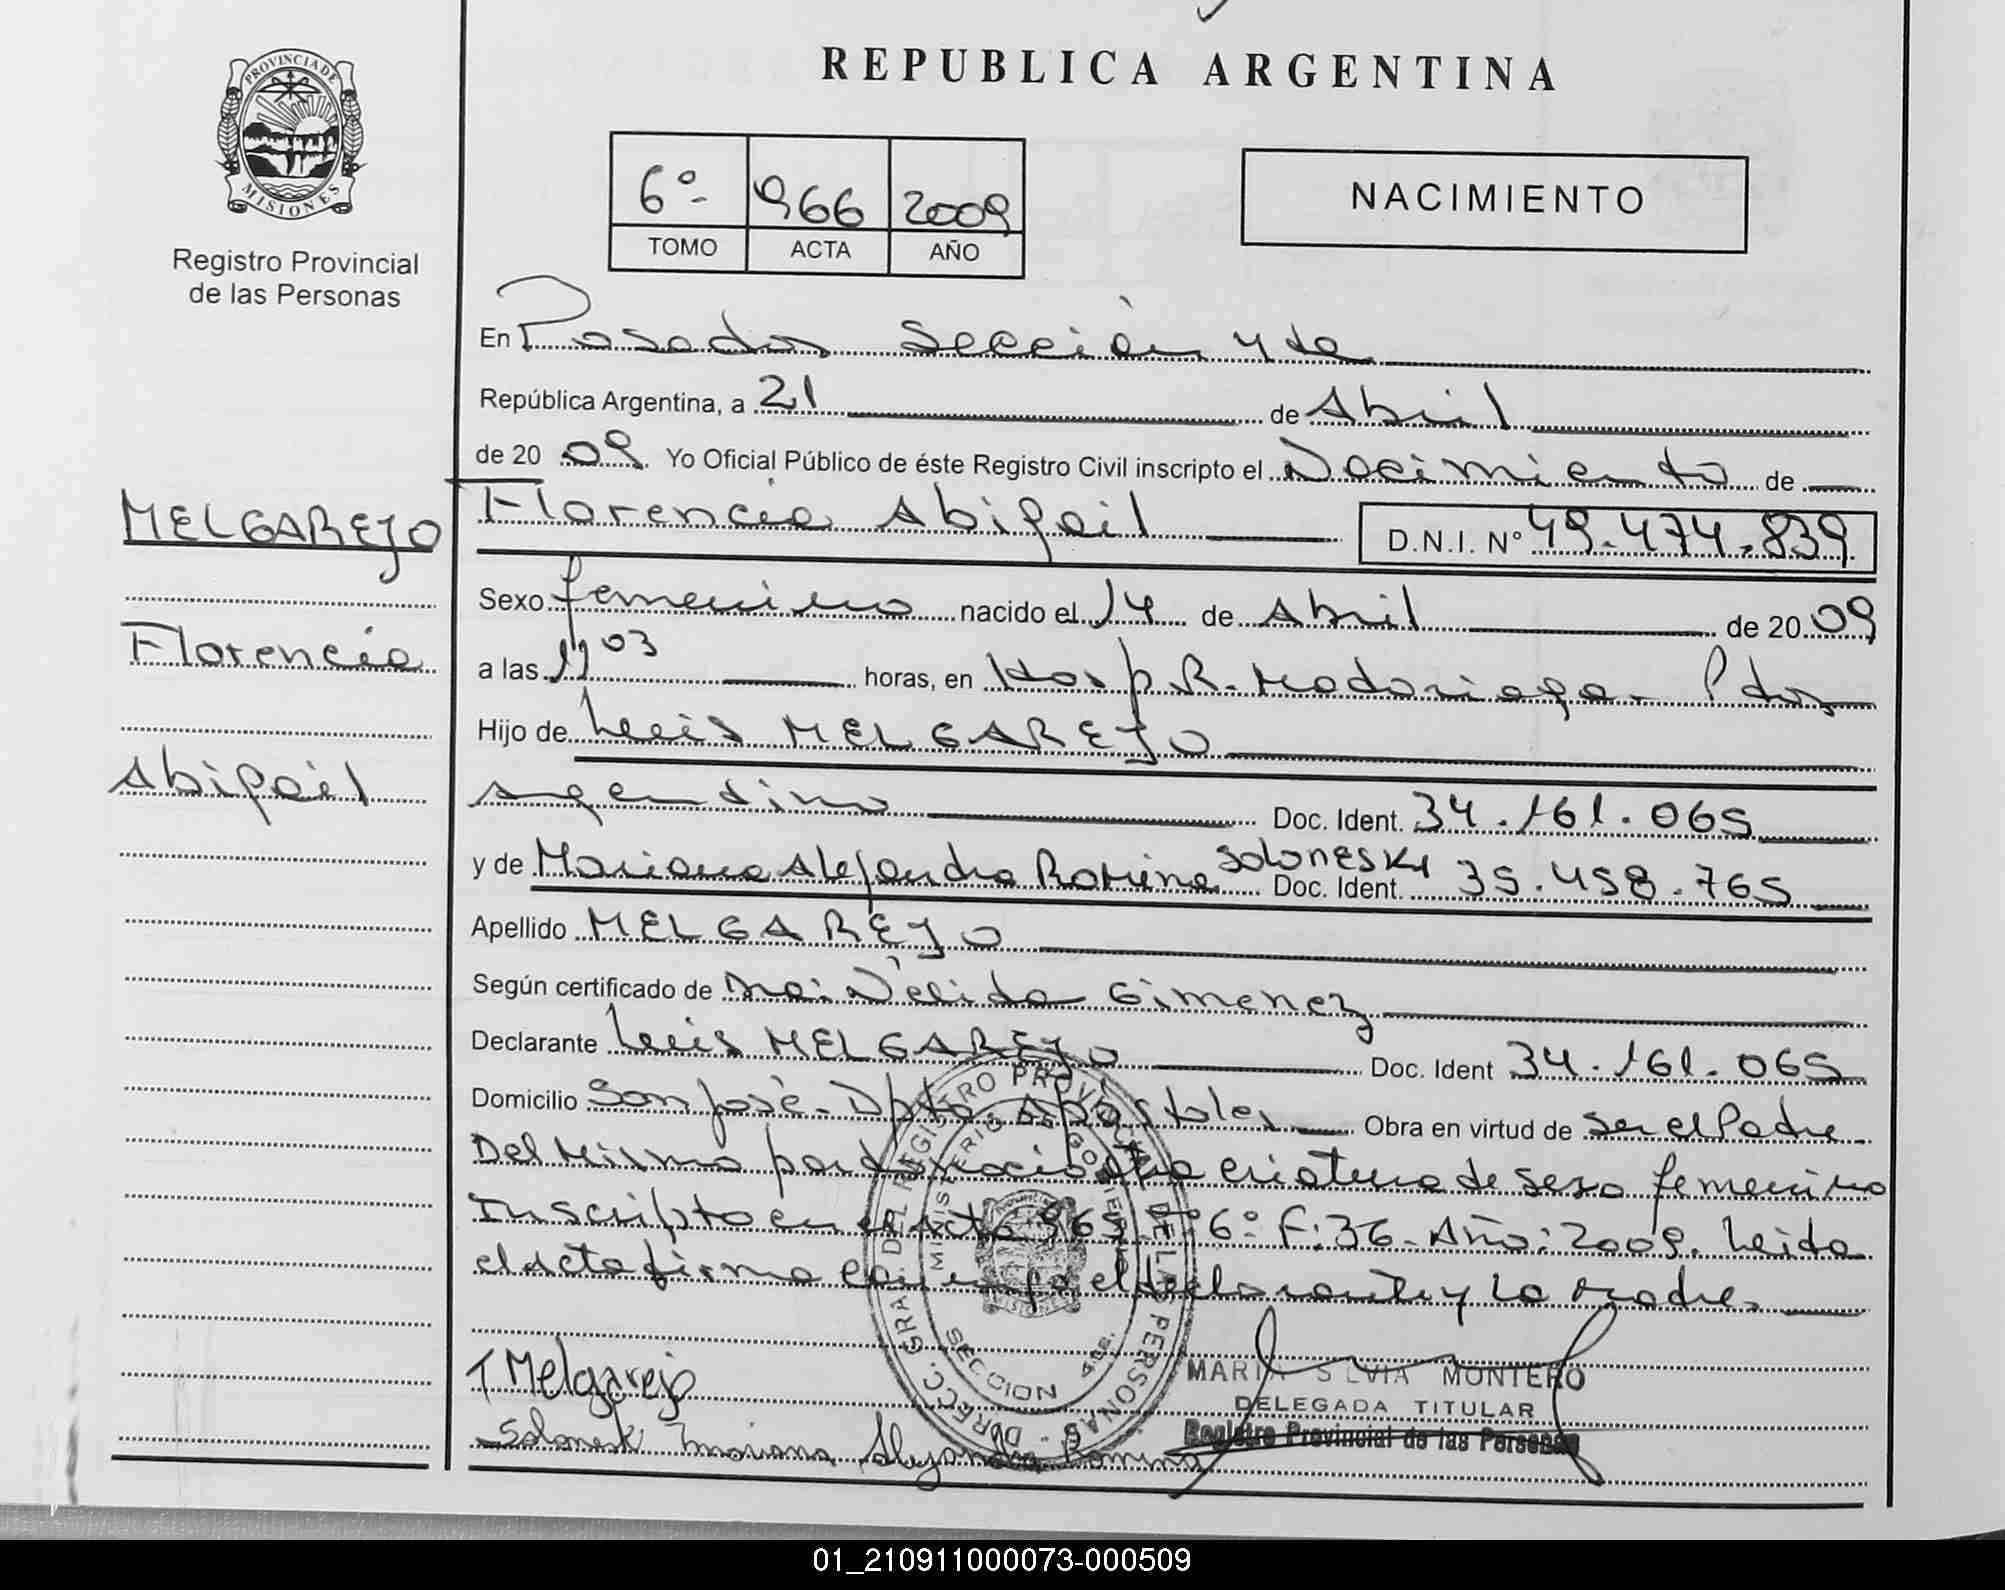 REPUBLICA ARGENTINA
PROVINCIA DE
MISIONES
Registro Provincial
de las Personas
6º- 966 2009
TOMO ACTA AÑO
NACIMIENTO
En Posadas Sección 4ta
República Argentina, a 21 de Abril
de 2009 Yo Oficial Público de éste Registro Civil inscripto el Nacimiento de
MELGAREJO
Florencia
Abigail
Florencia Abigail D.N.I. Nº 49.474.839
Sexo femenino nacido el 14 de Abril de 2009
a las 11 03 horas, en Hosp R. Madariaga - Pdas
Hijo de Luis MELGAREJO
argentino Doc. Ident. 34.161.065
y de Mariana Alejandra Romina SOLONESKI Doc. Ident. 35.458.765
Apellido MELGAREJO
Según certificado de Dra: Nélida Gimenez
Declarante Luis MELGAREJO Doc. Ident 34.161.065
Domicilio San José - Dpto. Apóstoles Obra en virtud de ser el Padre
Del Mismo otra criatura de sexo femenino
Inscripto en Acta 965 Tº 6º F: 36 - Año: 2009. Leida
el acta firma el declarante y La Madre.
DIRECC. GRAL. DEL REGISTRO PROVINCIAL DE LAS PERSONAS
MINISTERIO DE GOBIERNO
SECCION 4ta.
MISIONES
Melgarejo
Mariana Alejandra Romina
MARIA SILVIA MONTERO
DELEGADA TITULAR
Registro Provincial de las Personas
01_210911000073-000509